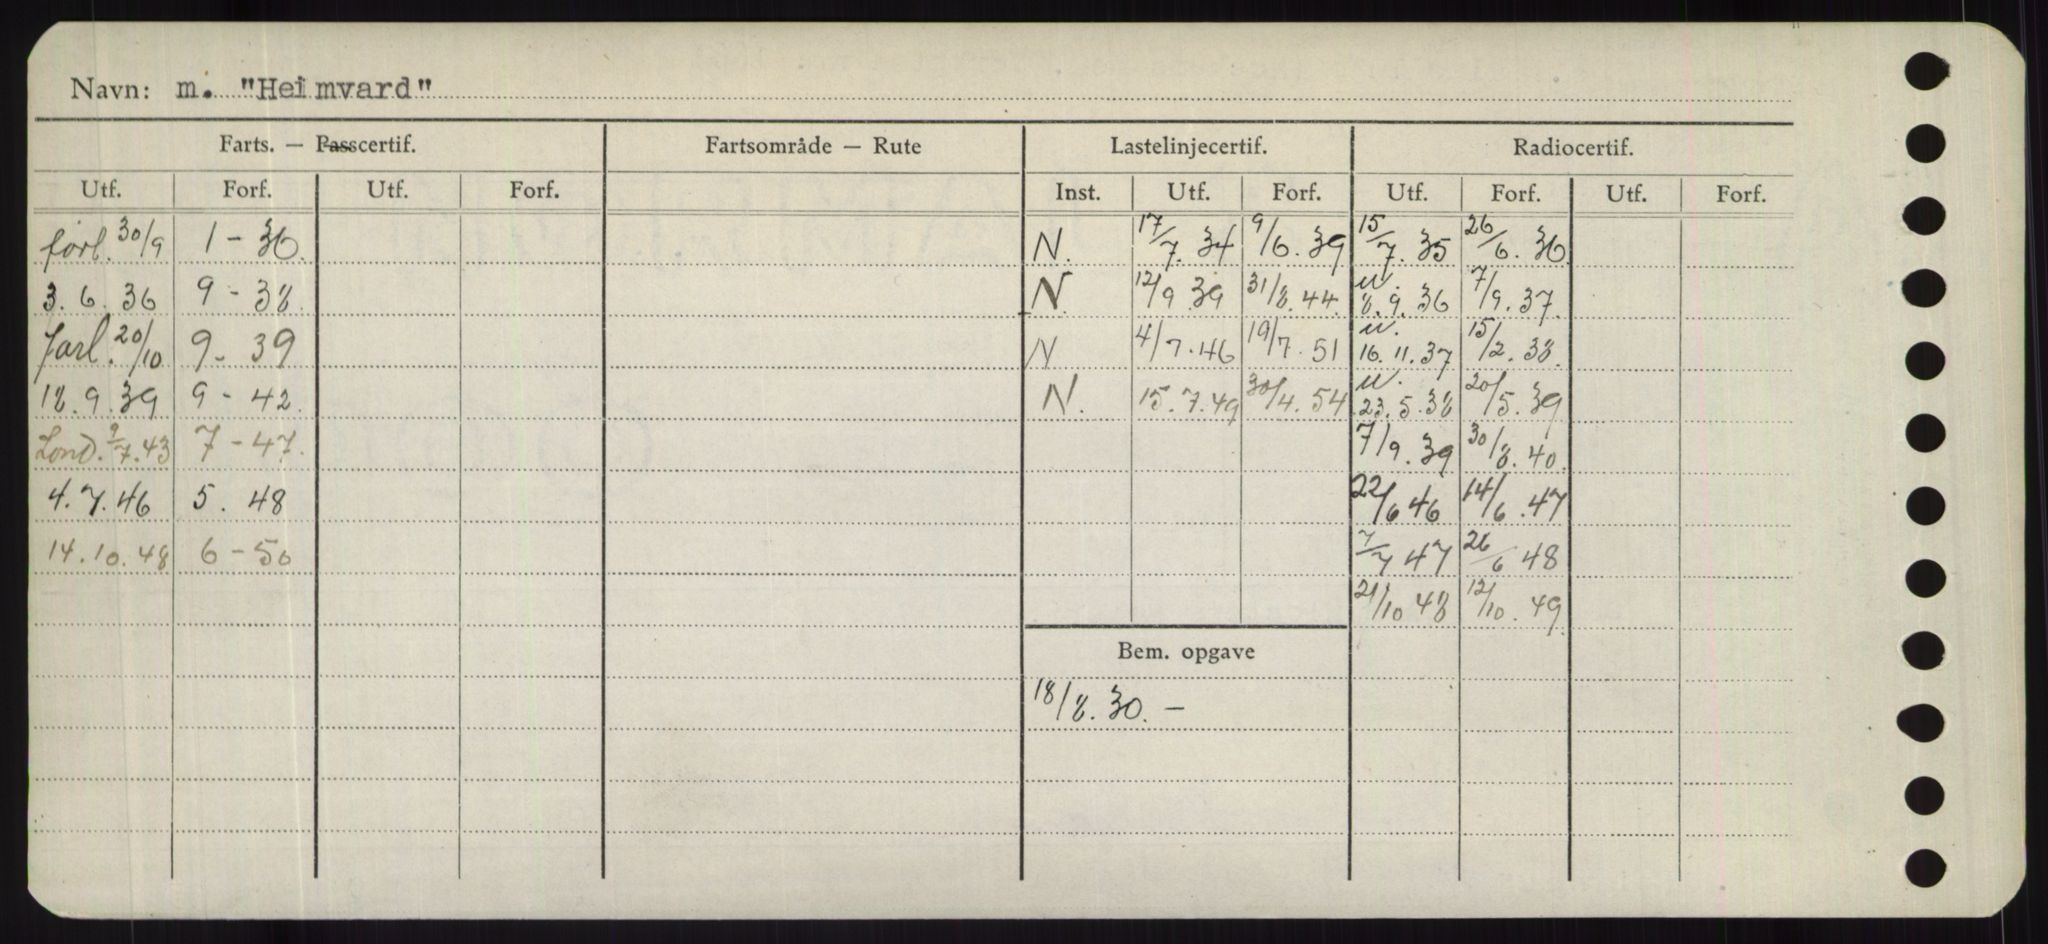 Navn: m. "Heimvard"
Farts. — Passcertif. Fartsområde — Rute Lastelinjecertif. Radiocertif.
Utf. Forf. Utf. Forf. Inst. Utf. Forf. Utf. Forf. Utf. Forf.
forl. 30/9 1 - 36. N. 17/7. 34 9/6. 39 15/7. 35 26/6. 36
3. 6. 36 9 - 38. N. 12/9 39 31/8. 44. u. 8. 9. 36 7/9. 37.
Forl. 20/10 9 - 39 N 4/7. 46 19/7. 51 u. 16. 11. 37 15/2. 38.
18. 9. 39 9 - 42. N. 15. 7. 49 30/4. 54 u. 23. 5. 38 20/5. 39
Lond. 9/7. 43 7 - 47. 7/9. 39 30/8. 40.
4. 7. 46 5. 48 22/6 46 14/6. 47
14. 10. 48 6 - 50 7/7 47 26/6 48
21/10 48 12/10. 49
Bem. opgave
18/8. 30. —